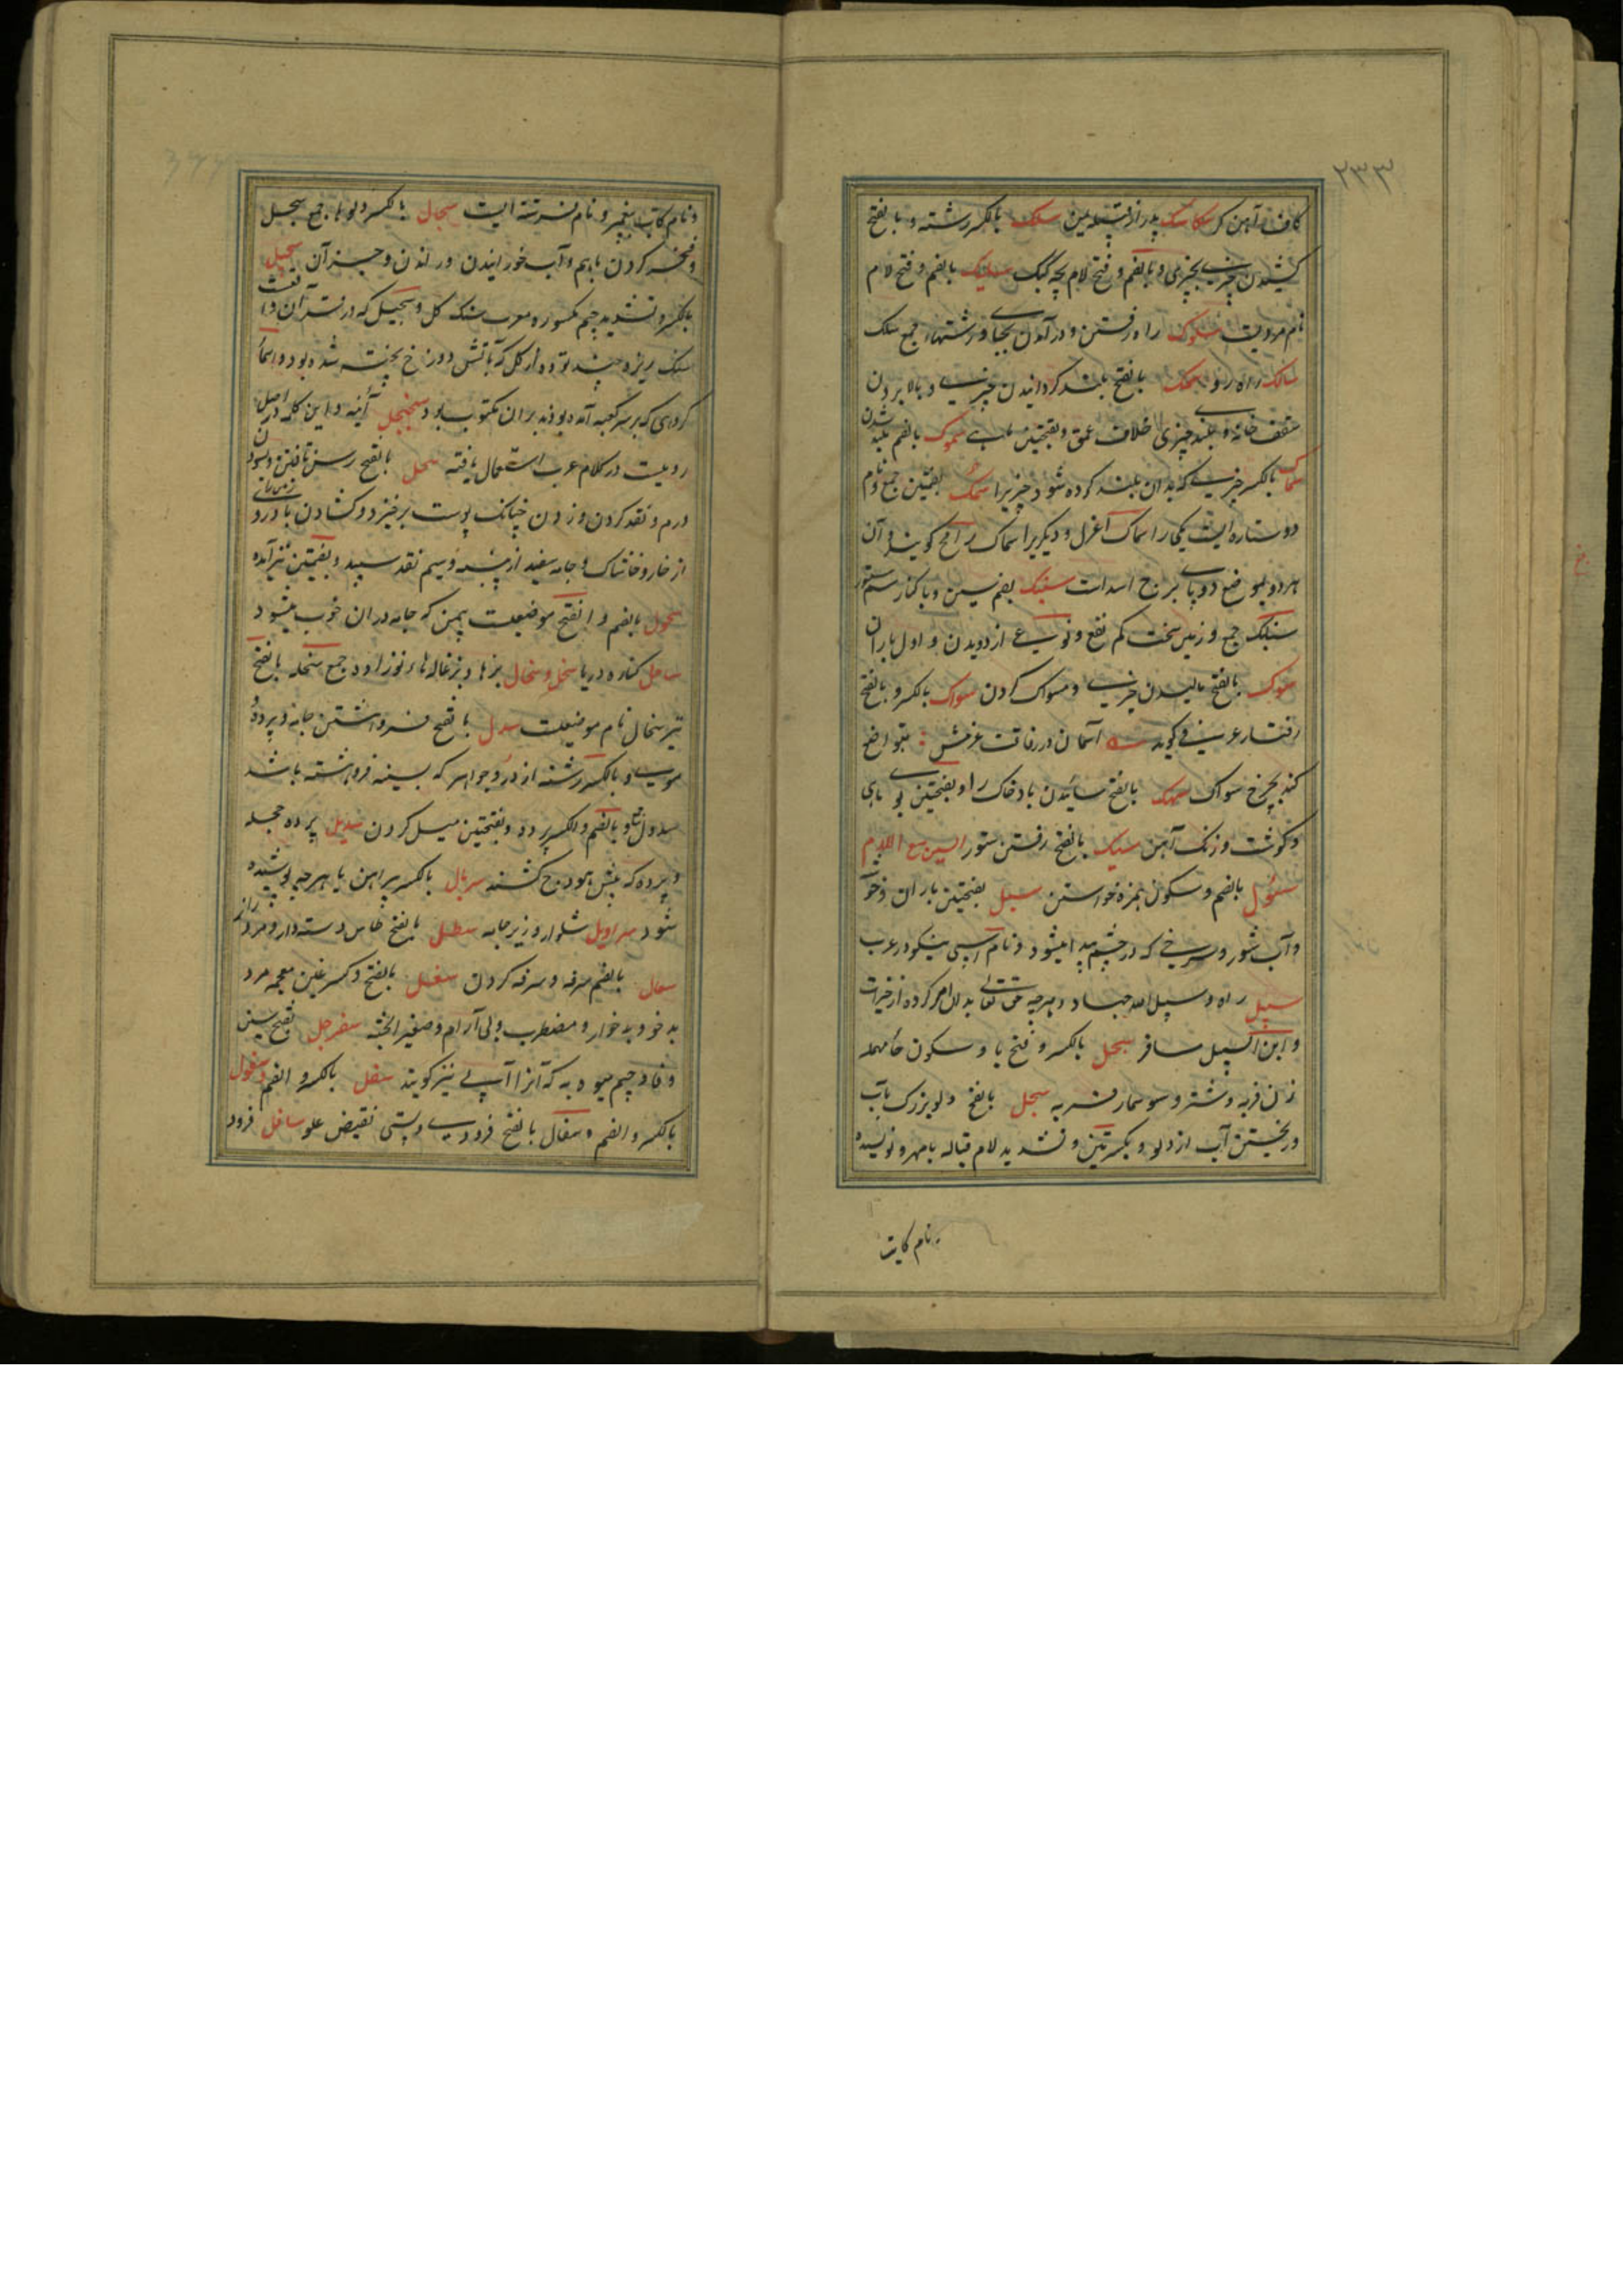 ۲۳۳
کاف آهن کر سکاسک پدر از قبیله یمن سلک بالکسر رشته و بالفتح
کشیدن چیزی بچیزی و بالضم و فتح لام بچه کبک سلیک بالضم و فتح لام
نام مردیست سلوک راه رفتن و درآمدن بجای و رشتهاء جمع سلک
سالک راه رو سمک بالفتح بلند کردانیدن چیزی و بالا بردن
سقف خانه و بلند چیزی خلاف عمق و بفتحتین ماهی سموک بالضم بلند شدن
سماک بالکسر چیزیست که بدان بلند کرده شود چیزیرا سمک بضمتین جمع و نام
دو ستاره ایست یکی را سماک اعزل و دیگریرا سماک رامح کویند و آن
هر دو بموضع دو پای برج اسد است سنبک بضم سین و با کنار سم ستور
سنابک جمع و زمین سخت کم نفع و نوعی از دویدن و اول باران
سوک بالفتح مالیدن چیزی و مسواک کردن سواک بالکسر و بالفتح
رفتار عرفی کوید آسمان در رفاقت عزمش : بتواضع
کند بچرخ سواک سهک بالفتح سائیدن باد خاک را و بفتحتین بوی ماهی
و کوشت و زنک آهن سیک بالفتح رفتن ستور السین مع اللام
سئول بالضم و سکون همزه خواستن سبل بفتحتین باران و خوشه
و آب شور و سرخی که در چشم پیدا میشود و نام اسپی نیکو در عرب
سبیل راه و سبیل الله جهاد و هرچه حق تعالی بدان امر کرده از خیرات
و ابن السبیل مسافر سبحل بالکسر و فتح با و سکون حاء مهمله
زن فربه و شتر و سوسمار فربه سجل بالفتح دلو بزرک بآب
و ریختن آب از دلو و بکسرتین و تشدید لام قباله با مهر و نویسنده
و نام کاتب
و نام کاتب پیغمبر و نام فرشته ایست سجال بالکسر دلوها جمع سجل
و فخر کردن باهم و آب خورانیدن و راندن و جز آن سجیل
بالکسر و تشدید جیم مکسوره معرب سنک کل و سجیل که در قرآن واقعست
سنک ریزه چند بوده از کل که بآتش دوزخ پخته شده بود و اسماء
کروهی که بر سر کعبه آمده بودند بران مکتوب بود سجنجل آئینه و این کلمه در اصل
رومیست در کلام عرب استعمال یافته سحل بالفتح رسن تافتن و سودن
درم و نقد کردن و زدن چنانک پوست برخیزد و کشادن باد روی زمین را
از خار و خاشاک و جامه سفید از پنبه و سیم نقد سپید و بضمتین نیز آمده
سحول بالضم و الفتح موضعیست بیمن که جامه دران خوب میشود
ساحل کناره دریا سخل و سخال بزها و بزغاله هاء نوزاد جمع سخله بالفتح
نیز سخال نام موضعیست سدل بالفتح فرو اشتن جامه و پرده
موی و بالکسر رشته از در و جواهر که بسینه فروهشته باشد
سدول جماعه و بالضم و الکسر پرده و بفتحتین میل کردن سدیل پرده حجله
و پرده که پیش هودج کشند سربال بالکسر پیراهن یا هرچه پوشیده
شود سراویل شلوار و زیر جامه سطل بالفتح طاس دسته دار و مرد دراز
سعال بالضم سرفه و سرفه کردن سغل بالفتح و کسر غین معجمه مرد
بدخو و بدخوار و مضطرب و بی آرام و صغیر الجثه سفرجل بفتح سین
و فا و جیم میوه به که آنرا آبی نیز کویند سفل بالکسر و الضم و سفول
بالکسر و الضم و سفال بالفتح فرودی و پستی نقیض علو سافل فرود